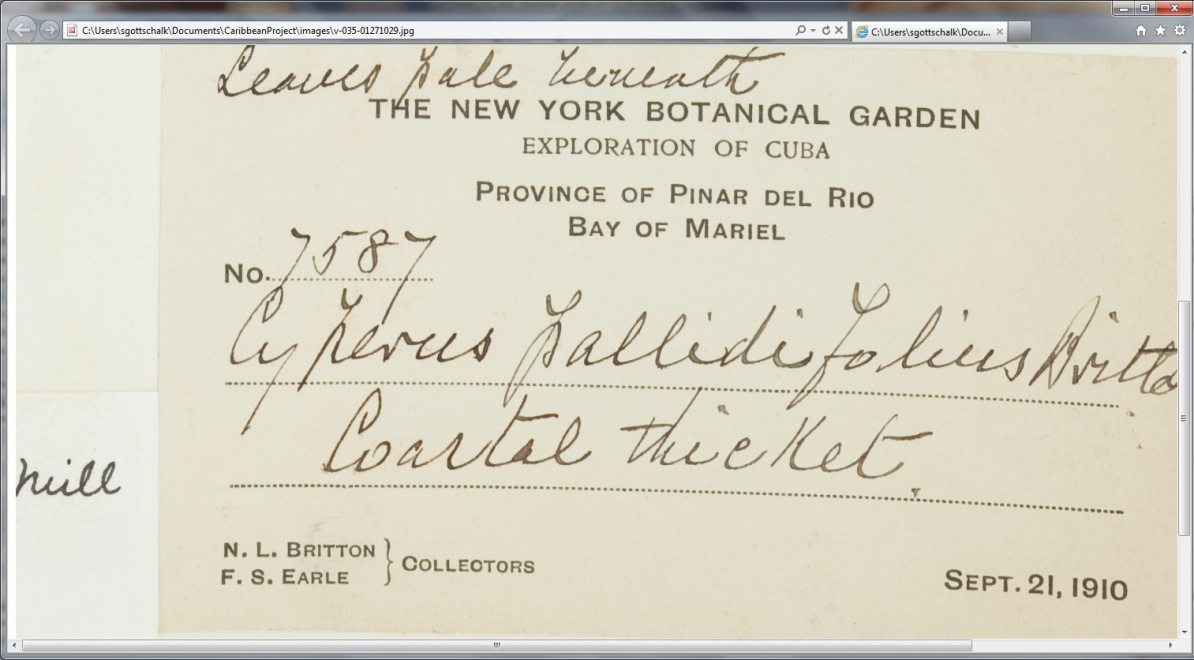 C:\Users\sgottschalk\Documents\CaribbeanProject\images\v-035-01271029.jpg
C:\Users\sgottschalk\Docu...
Leaves pale beneath
THE NEW YORK BOTANICAL GARDEN
EXPLORATION OF CUBA
PROVINCE OF PINAR DEL RIO
BAY OF MARIEL
No. 7587
Cyperus pallidifolius Britto
Coastal thicket.
neill
N. L. BRITTON
F. S. EARLE } COLLECTORS
SEPT. 21, 1910